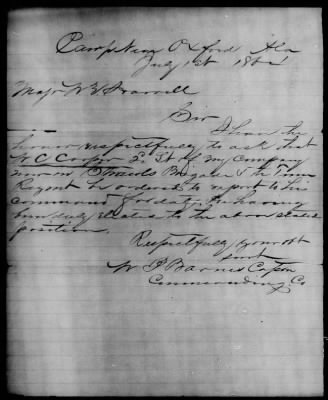 Camp Near Oxford Ala
July 1st 186
Major W E
Sir
I have the
honor respectfully to ask that
W C Cooper 2 Lt of my Company
now in Brigade 5th Tenn
Regmt be ordered to report to his
command for duty he having
been duly to the above stated
position
Respectfully your obt
Servt
W P Barnes Captn
Commanding Co